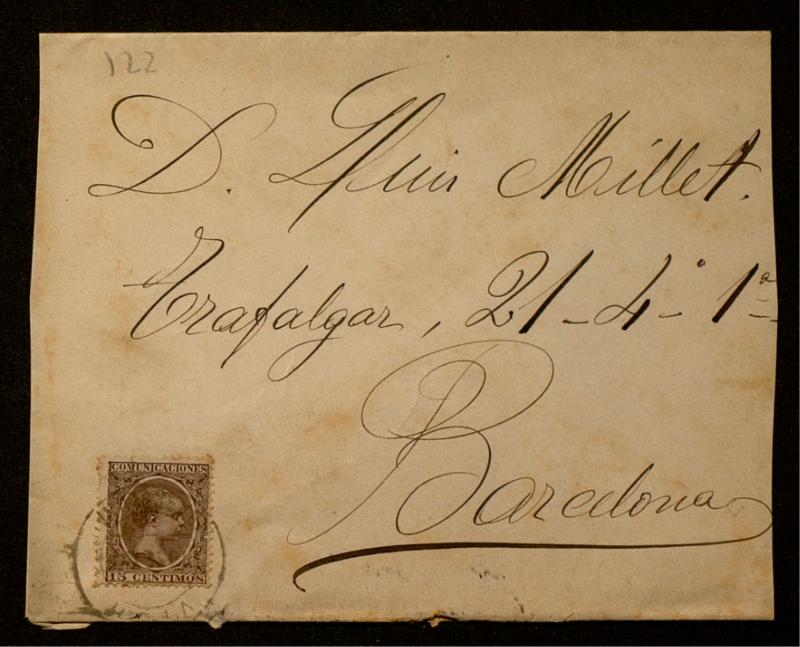 122
D. Lluis Millet.
Trafalgar, 21-4º-1ª
Barcelona
COMUNICACIONES
15 CENTIMOS